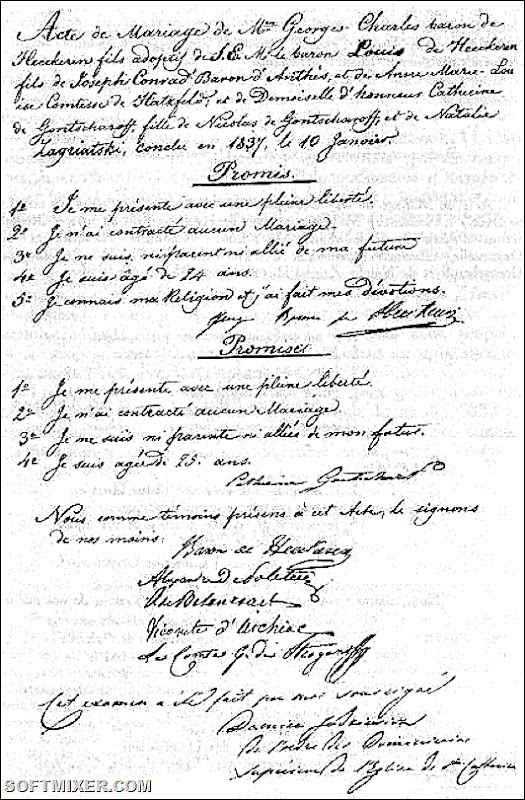 Acte de Mariage de Mr. Georges Charles baron de
Heeckeren fils adoptif de S.E. Mr. le baron Louis de Heeckeren
fils de Joseph Conrad Baron d'Anthès, et de Anne Marie Lou
ise Comtesse de Hatzfeld, et de Demoiselle d'honneur Catherine
de Gontscharoff, fille de Nicolas de Gontscharoff, et de Natalie
Zagriatski, conclu en 1837. le 10 Janvier.
Promis.
1º Je me présente avec une pleine liberté.
2º Je n'ai contracté aucun Mariage.
3º Je ne suis ni parent ni allié de ma future
4º Je suis âgé de 24 ans.
5º Je connais ma Religion et j'ai fait mes dévotions.
Baron de Heeckeren
Promise
1º Je me présente avec une pleine liberté.
2º Je n'ai contracté aucun Mariage.
3º Je ne suis ni parente ni alliée de mon futur.
4º Je suis agée de 25. ans.
Catherine Gontscharoff
Nous, comme témoins présens à cet Acte, le signons
de nos mains.
Baron de Heeckeren
Vicomte d'Archiac
Le Comte G. de Strogonoff
Cet examen a été fait par moi soussigné
Damien
de l'ordre des Dominicains
Supérieur de l'Eglise de Ste Catherine
SOFTMIXER.COM